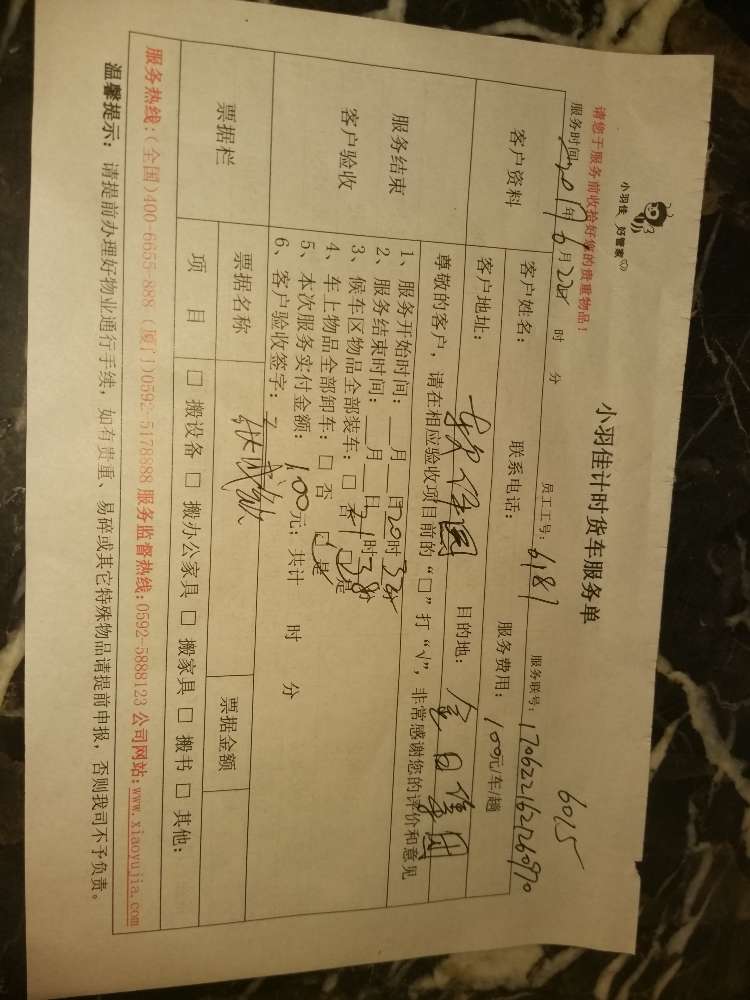 小羽佳 好管家
小羽佳计时货车服务单
6015
请您于服务前收拾好您的贵重物品!
服务时间: 2017年6月22日 时 分 员工工号: 6187 服务联号: 170622162126090
客户资料 客户姓名: 联系电话: 服务费用: 100元/车/趟
客户地址: 目的地: 金日集团
尊敬的客户,请在相应验收项目前的“□”打“√”,非常感谢您的评价和意见
服务结束
客户验收
1、服务开始时间: __月__日20时32分
2、服务结束时间: __月__日21时38分
3、候车区物品全部装车: □ 否 □ 是
4、车上物品全部卸车: □ 否 □ 是
5、本次服务实付金额: 100元; 共计 时 分
6、客户验收签字:
票据栏 票据名称 票据金额
项目 □ 搬设备 □ 搬办公家具 □ 搬家具 □ 搬书 □ 其他:
服务热线:(全国)400-6655-888 (厦门)0592-5178888 服务监督热线:0592-5888123 公司网站:www.xiaoyujia.com
温馨提示: 请提前办理好物业通行手续,如有贵重、易碎或其它特殊物品请提前申报,否则我司不予负责。